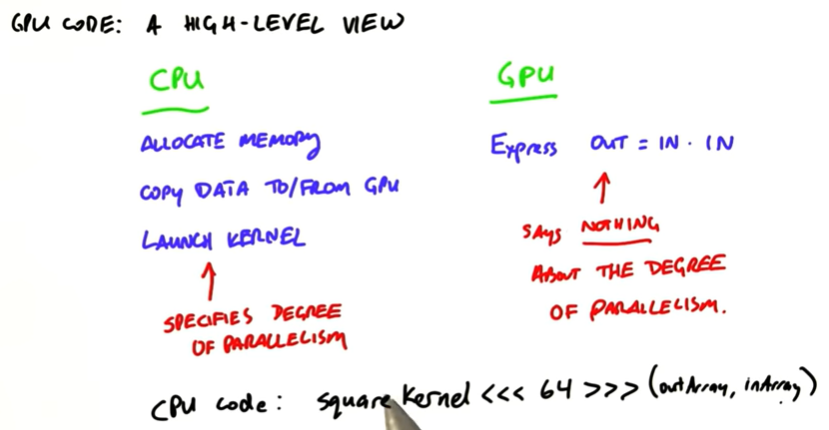 GPU CODE: A HIGH-LEVEL VIEW
CPU
ALLOCATE MEMORY
COPY DATA TO/FROM GPU
LAUNCH KERNEL
SPECIFIES DEGREE
OF PARALLELISM
GPU
Express OUT = IN · IN
SAYS NOTHING
ABOUT THE DEGREE
OF PARALLELISM.
CPU code: square kernel <<< 64 >>> (outArray, inArray)